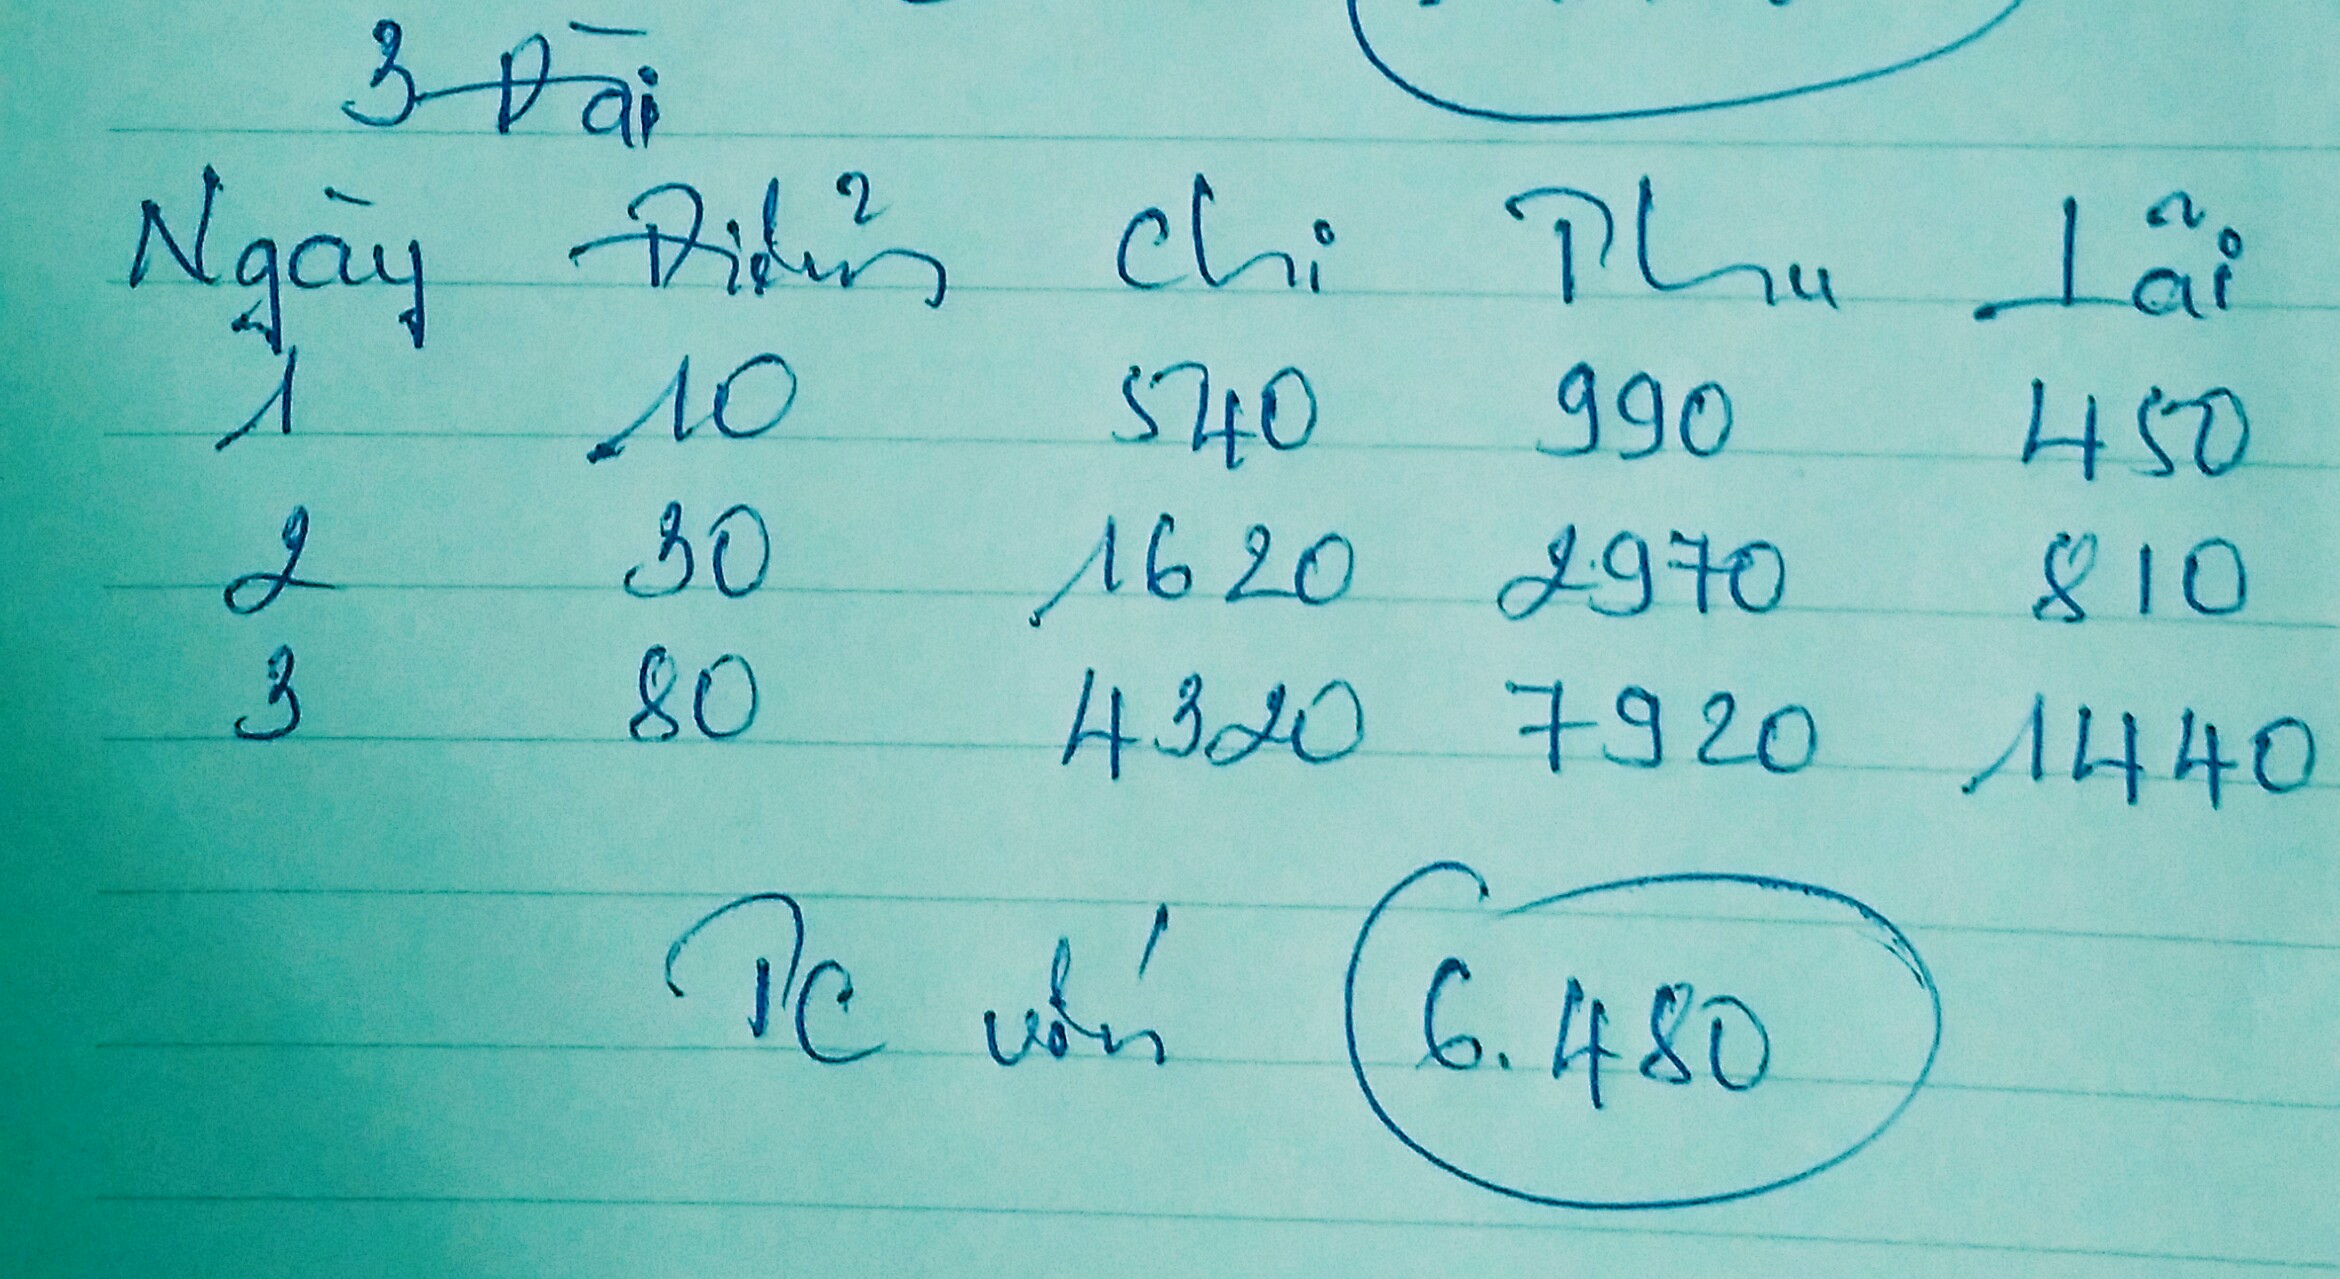 3 Đài
Ngày Điểm Chi Thu Lãi
1 10 540 990 450
2 30 1620 2970 810
3 80 4320 7920 1440
TC vốn 6.480